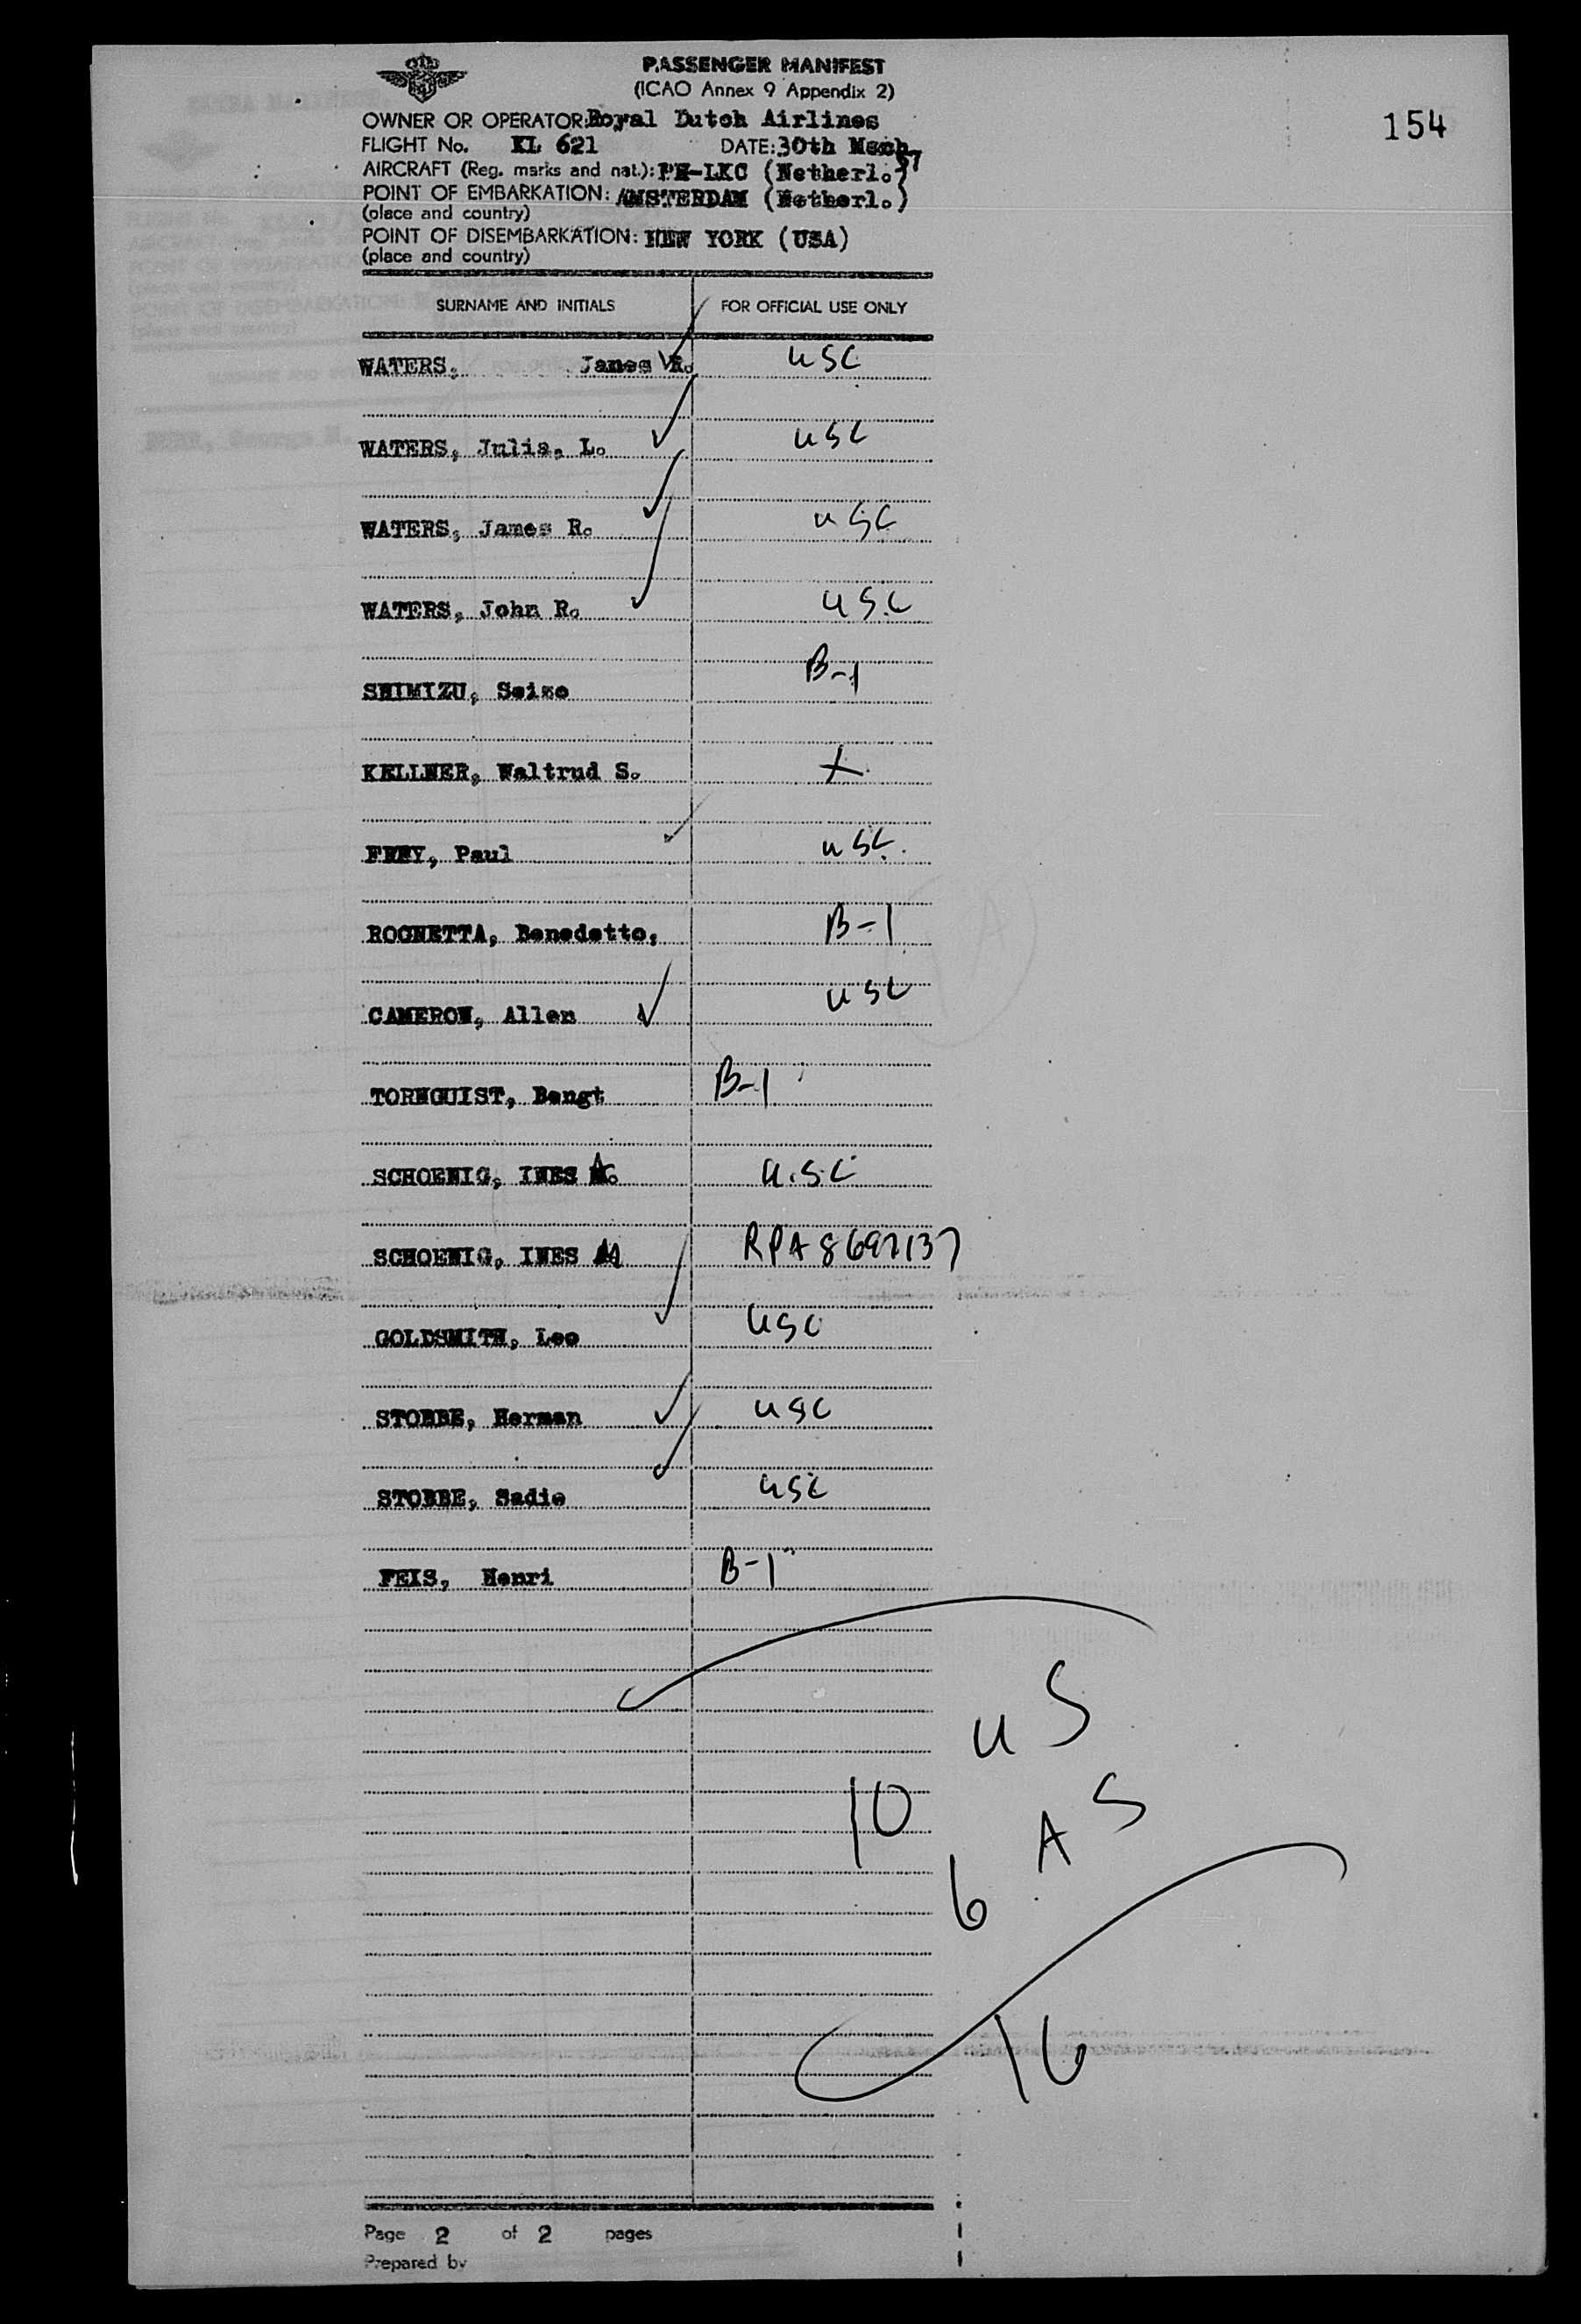 PASSENGER MANIFEST
(ICAO Annex 9 Appendix 2)
154
OWNER OR OPERATOR: Royal Dutch Airlines
FLIGHT No. KL 621 DATE: 30th Mach 57
AIRCRAFT (Reg. marks and nat.): PH-LKC (Netherl.)
POINT OF EMBARKATION: AMSTERDAM (Netherl.)
(place and country)
POINT OF DISEMBARKATION: NEW YORK (USA)
(place and country)
SURNAME AND INITIALS FOR OFFICIAL USE ONLY
WATERS, James R. USC
WATERS, Julia, L. USC
WATERS, James R. USC
WATERS, John R. USC
SHIMIZU, Seizo B-1
KELLNER, Waltrud S. X
FREY, Paul USC
ROGNETTA, Benedetto, B-1
CAMERON, Allen USC
TORNGUIST, Bengt B-1
SCHOENIG, INES A. U.S.C
SCHOENIG, INES M RPA 8697137
GOLDSMITH, Leo USC
STOBBE, Herman USC
STOBBE, Sadie USC
FEIS, Henri B-1
10 US
6 AS
16
Page 2 of 2 pages
Prepared by